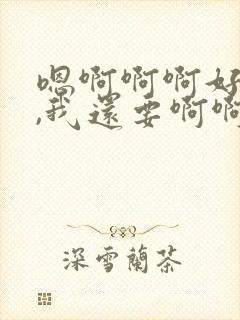 嗯啊啊啊好
,我还要啊啊
深雪蘭茶